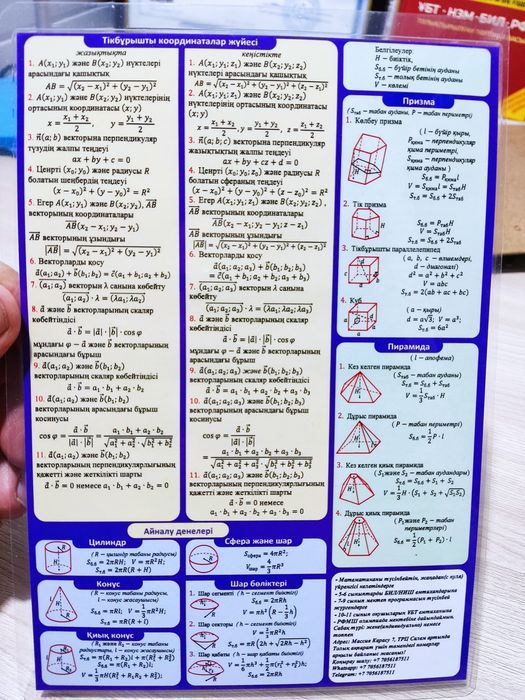 ҰБТ - НЗМ - БИЛ - РФ
Тікбұрышты координаталар жүйесі
жазықтықта
1. A(x₁; y₁) және B(x₂; y₂) нүктелері
арасындағы қашықтық
AB = √((x₂ − x₁)² + (y₂ − y₁)²)
2. A(x₁; y₁) және B(x₂; y₂) нүктелерінің
ортасының координатасы (x; y)
x = (x₁ + x₂)/2, y = (y₁ + y₂)/2
3. n⃗(a; b) векторына перпендикуляр
түзудің жалпы теңдеуі
ax + by + c = 0
4. Центрі (x₀; y₀) және радиусы R
болатын шеңбердің теңдеуі
(x − x₀)² + (y − y₀)² = R²
5. Егер A(x₁; y₁) және B(x₂; y₂), AB
векторының координаталары
AB(x₂ − x₁; y₂ − y₁)
AB векторының ұзындығы
|AB| = √((x₂ − x₁)² + (y₂ − y₁)²)
6. Векторларды қосу
a⃗(a₁; a₂) + b⃗(b₁; b₂) = c⃗(a₁ + b₁; a₂ + b₂)
7. (a₁; a₂) векторын λ санына көбейту
(a₁; a₂) · λ = (λa₁; λa₂)
8. a⃗ және b⃗ векторларының скаляр
көбейтіндісі
a⃗ · b⃗ = |a⃗| · |b⃗| · cos φ
мұндағы φ − a⃗ және b⃗ векторларының
арасындағы бұрыш
9. a⃗(a₁; a₂) және b⃗(b₁; b₂)
векторларының скаляр көбейтіндісі
a⃗ · b⃗ = a₁ · b₁ + a₂ · b₂
10. a⃗(a₁; a₂) және b⃗(b₁; b₂)
векторларының арасындағы бұрыш
косинусы
cos φ = (a⃗ · b⃗)/(|a⃗| · |b⃗|) = (a₁ · b₁ + a₂ · b₂)/(√(a₁² + a₂²) · √(b₁² + b₂²))
11. a⃗(a₁; a₂) және b⃗(b₁; b₂)
векторларының перпендикулярлығының
қажетті және жеткілікті шарты
a⃗ · b⃗ = 0 немесе a₁ · b₁ + a₂ · b₂ = 0
кеңістікте
1. A(x₁; y₁; z₁) және B(x₂; y₂; z₂)
нүктелері арасындағы қашықтық
AB = √((x₂ − x₁)² + (y₂ − y₁)² + (z₂ − z₁)²)
2. A(x₁; y₁; z₁) және B(x₂; y₂; z₂)
нүктелерінің ортасының координатасы
x = (x₁ + x₂)/2, y = (y₁ + y₂)/2, z = (z₁ + z₂)/2
3. n⃗(a; b; c) векторына перпендикуляр
жазықтықтың жалпы теңдеуі
ax + by + cz + d = 0
4. Центрі (x₀; y₀; z₀) және радиусы R
болатын сфераның теңдеуі
(x − x₀)² + (y − y₀)² + (z − z₀)² = R²
5. Егер A(x₁; y₁; z₁) және B(x₂; y₂; z₂),
AB векторының координаталары
AB(x₂ − x₁; y₂ − y₁; z − z₁)
AB векторының ұзындығы
|AB| = √((x₂ − x₁)² + (y₂ − y₁)² + (z₂ − z₁)²)
6. Векторларды қосу
a⃗(a₁; a₂; a₃) + b⃗(b₁; b₂; b₃)
= c⃗(a₁ + b₁; a₂ + b₂; a₃ + b₃)
7. (a₁; a₂; a₃) векторын λ санына
көбейту
(a₁; a₂; a₃) · λ = (λa₁; λa₂; λa₃)
8. a⃗ және b⃗ векторларының скаляр
көбейтіндісі
a⃗ · b⃗ = |a⃗| · |b⃗| · cos φ
мұндағы φ − a⃗ және b⃗ векторларының
арасындағы бұрыш
9. a⃗(a₁; a₂; a₃) және b⃗(b₁; b₂; b₃)
векторларының скаляр көбейтіндісі
a⃗ · b⃗ = a₁ · b₁ + a₂ · b₂ + a₃ · b₃
10. a⃗(a₁; a₂; a₃) және b⃗(b₁; b₂; b₃)
векторларының арасындағы бұрыш
косинусы
cos φ = (a⃗ · b⃗)/(|a⃗| · |b⃗|)
= (a₁ · b₁ + a₂ · b₂ + a₃ · b₃)/(√(a₁² + a₂² + a₃²) · √(b₁² + b₂² + b₃²))
11. a⃗(a₁; a₂; a₃) және b⃗(b₁; b₂; b₃)
векторларының перпендикулярлығының
қажетті және жеткілікті шарты
a⃗ · b⃗ = 0 немесе
a₁ · b₁ + a₂ · b₂ + a₃ · b₃ = 0
Белгілеулер
H − биіктік,
Sб.б − бүйір бетінің ауданы
Sт.б − толық бетінің ауданы
V − көлемі
Призма
(Sтаб − табан ауданы, P − табан периметрі)
1. Көлбеу призма
(l − бүйір қыры,
Pқима − перпендикуляр
қима периметрі,
Sқима − перпендикуляр
қима ауданы)
Sб.б = Pқима l
V = Sқима l = Sтаб H
Sт.б = Sб.б + 2Sтаб
2. Тік призма
Sб.б = Pтаб H
V = Sтаб H
Sт.б = Sб.б + 2Sтаб
3. Тікбұрышты параллелепипед
(a, b, c − өлшемдері,
d − диагоналі)
d² = a² + b² + c²
V = abc
Sт.б = 2(ab + ac + bc)
4. Куб
(a − қыры)
d = a√3; V = a³;
Sт.б = 6a²
Пирамида
(l − апофема)
1. Кез келген пирамида
(Sтаб − табан ауданы)
Sт.б = Sб.б + Sтаб
V = 1/3 Sтаб · H
2. Дұрыс пирамида
(P − табан периметрі)
Sб.б = 1/2 P · l
3. Кез келген қиық пирамида
(S₁ және S₂ − табан аудандары)
Sт.б = Sб.б + S₁ + S₂
V = 1/3 H · (S₁ + S₂ + √(S₁S₂))
4. Дұрыс қиық пирамида
(P₁ және P₂ − табан
периметрлері)
Sб.б = 1/2 (P₁ + P₂) · l
Айналу денелері
Цилиндр
(R − цилиндр табаны радиусы)
Sб.б = 2πRH; V = πR²H;
Sт.б = 2πR(R + H)
Конус
(R − конус табаны радиусы,
l − конус жасаушысы)
Sб.б = πRl; V = 1/3 πR²H;
Sт.б = πR(R + l)
Қиық конус
(R₁ және R₂ − конус табаны
радиустары, l − конус жасаушысы)
Sт.б = π(R₁ + R₂)l + π(R₁² + R₂²)
Sб.б = π(R₁ + R₂)l;
V = 1/3 πH(R₁² + R₁R₂ + R₂²);
Сфера және шар
Sсфера = 4πR²;
Vшар = 4/3 πR³
Шар бөліктері
1. Шар сегменті (h − сегмент биіктігі)
Sб.б = 2πRh
V = πh²(R − 1/3 h)
2. Шар секторы (h − сегмент биіктігі)
V = 2/3 πR²h
Sт.б = πR(2h + √(2Rh − h²))
3. Шар қабаты (h − шар қабаты биіктігі)
V = 1/6 πh³ + 1/2 π(r₁² + r₂²)h;
Sб.б = 2πRh
- Математиканы түсінбейтін, жаңадан(с нуля)
үйренгісі келетіндерге
- 5-6 сыныптарды БИЛ/НИШ емтихандарына
- 7-9 сынып мектеп программасын түсінбей
жүргендерге
- 10-11 сынып оқушыларын ҰБТ емтиханына
- РФМШ олимпиада жетістікке дайындаймын.
Сабақ түрі: жеке(индивидуально) немесе
топпен
Адрес: Массив Карасу 7, ТРЦ Сәлем артында
Толық ақпарат үшін төмендегі номерлер
арқылы байланыс жасаңыз!
Қоңырау шалу: +7 7056187511
Whatsapp: +7 7056187511
Telegram: +7 7056187511